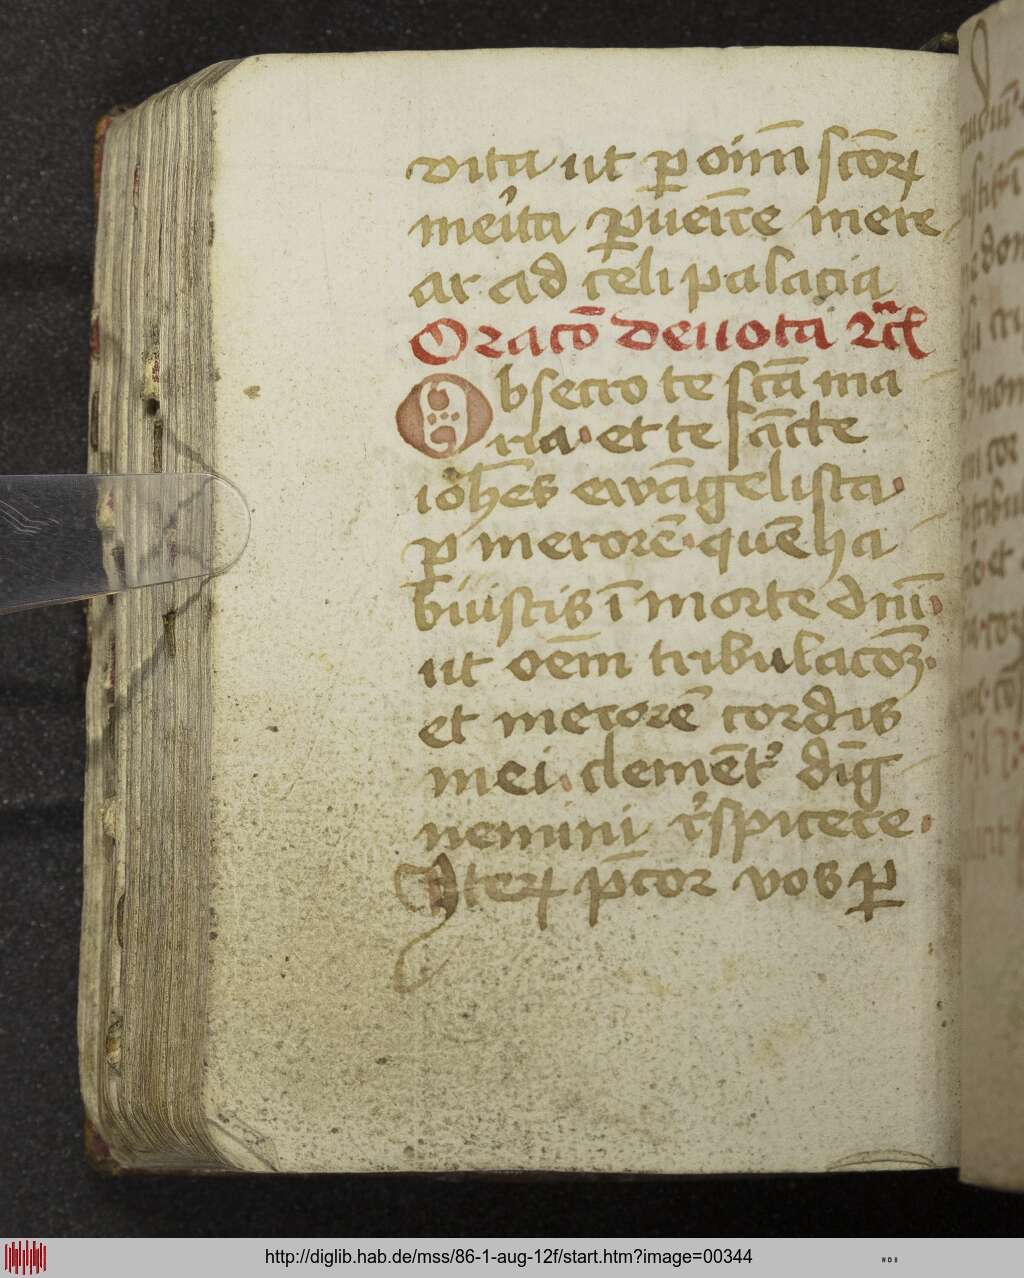 vita ut ꝑ oim̄ scōꝝ
meīta ꝑueīre mere
ar ad celi palacia
Oracō deuota
Obsecro te scā̄ ma
ria · et te sācte
ioh̄es ewāgelista ·
ꝑ merorē · quē ha
buistis ī morte dn̄i ·
ut oēm tribulacōꝫ ·
et merorē cordis
mei · clemēt᷒ dīg
nemini respicere ·
Iteꝝ p̄cor vos ꝑ
http://diglib.hab.de/mss/86-1-aug-12f/start.htm?image=00344